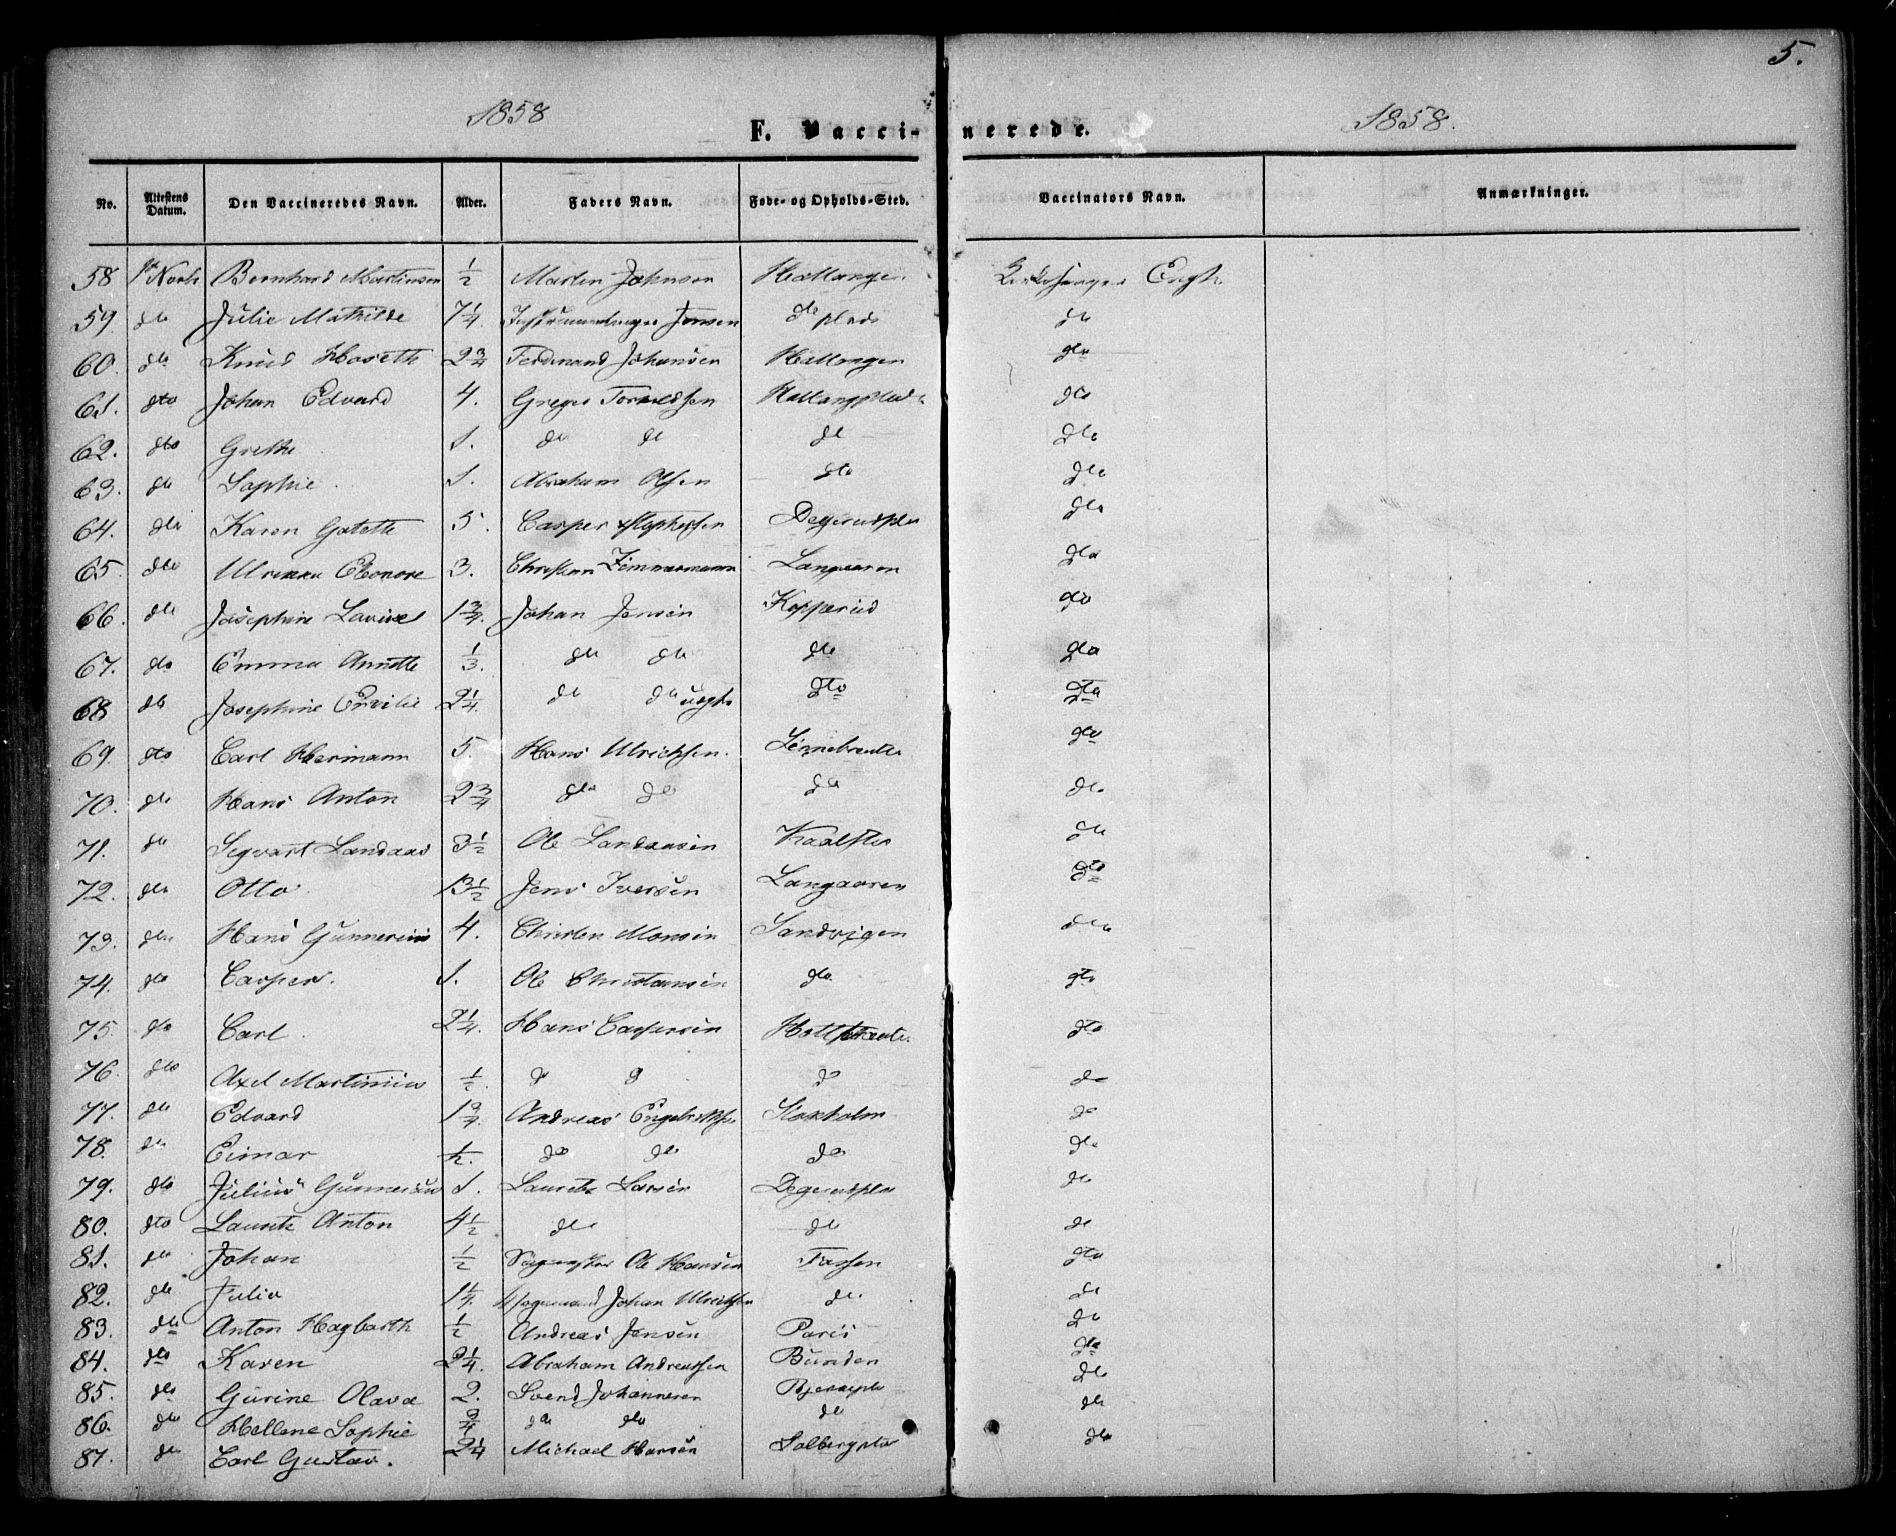 5.
1858 1858.
F. Vaccinerede.
No. Attestens Datum. Den Vaccineredes Navn. Alder. Faders Navn. Føde- og Opholds-Sted. Vaccinators Navn. Anmærkninger.
58 Bernhard Martinsen 1/2 Martin Johnsen Hallangen
59 dto Julie Mathilde 7 1/4. Jensen dto plads dto
60. dto Knud Hoseth 2 3/4 Ferdinand Johansen Hallangen dto
61. dto Johan Edvard 4. Greger Hallangplads dto
62. dto Grethe 1. do do do dto
63. dto Sophie. 1. Abraham Olsen dto dto
64. dto Karen 5. Casper Degerudpla dto
65. dto Ulrikka Eleonore 3. Christian Zimmermann Langaaren dto
66. dto Josephine Lovise 1 3/4. Johan Jensen Kopperud dto
67. dto Emma Annette 1/3. dto dto dto dto
68 dto Josephine 2 1/4. do do dto dto
69. dto Carl Hermann 5. Hans Ulrichsen. dto
70. dto Hans Anton 2 3/4 dto do do dto
71. dto Segvart Landaas 3 1/2 Ole dto
72. dto Otto. 13 1/2 Jens Iversen Langaaren dto
73. dto Hans Gunnerius 4. Christen Monsen Sandvigen dto
74. dto Casper. 1. Ole Christiansen dto dto
75. dto Carl. 2 1/4. Hans Caspersen dto
76. dto Axel Martinius 1/2. do do do do
77. dto Edvard 1 3/4. Andreas Engebretsen Stokholm do
78. dto Eimar 1/2. do do do do
79. dto Julius Gunnerius 1. Lauritz Larsen Degerudpla do
80. dto Lauritz Anton 4 1/2 do do do
81. do Johan 1/2 Ole Hansen dto
82. do Julia 1 1/4. Johan Ulrichsen do. do
83. do Anton Hagbarth 1/2 Andreas Jensen Paris do
84. dto Karen 2 1/4. Abraham Andreassen Bunden dto
85. dto Gurine Olava 2. Svend Johannesen dto
86. dto Hellene Sophie 3/4 do dto do do
87. do Carl Gustav. 2 1/4 Michael Hansen Solbergpla dto